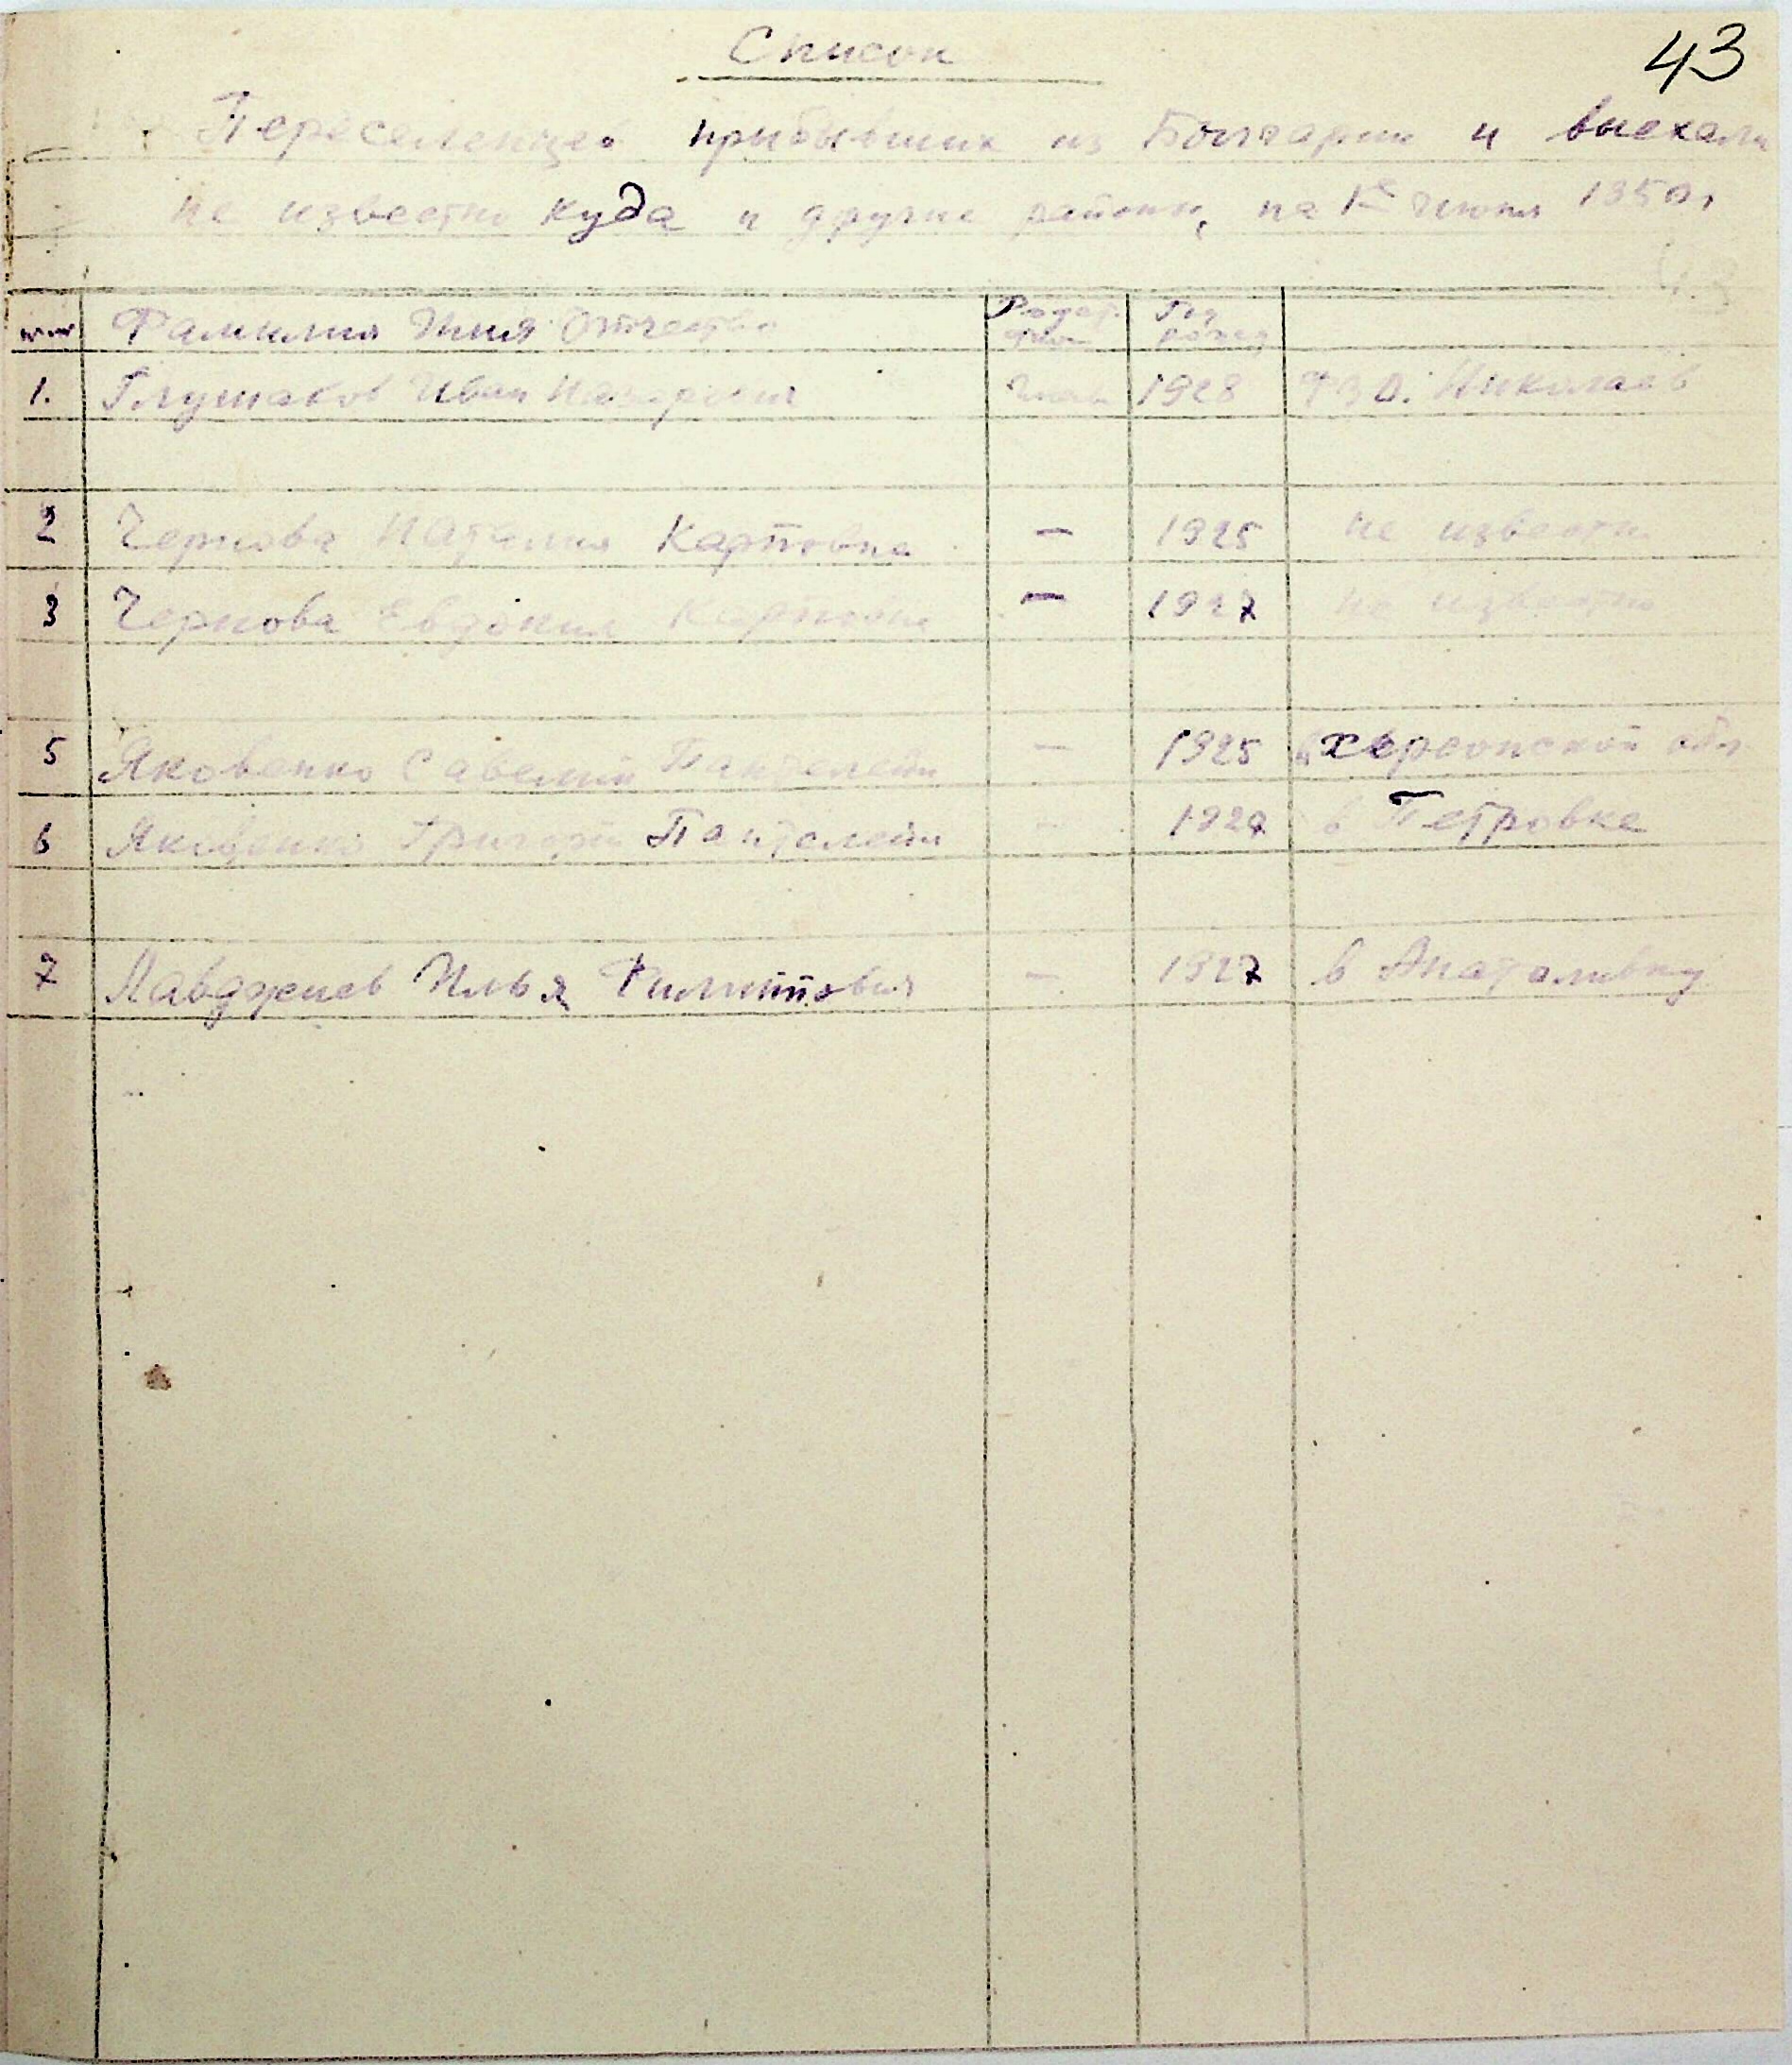 43
Список
Переселенцев прибывших из Болгарии и выехали
не известно куда и другие районы, на 1е июня 1950г
Фамилия Имя Отчество Год рожд
1. Глушаков Иван Назарович 1928 ФЗО. Николаев
2 Чернова Наталия Карповна — 1925 не известн
3 Чернова Евдокия Карповна — 1927 не известно
5 Яковенко Савелий Пантелейи — 1925 в Херсонской обл
6 Яковенко Григорий Пантелейи — 1929 в Петровке
7 Лавджиев Илья Филиппович — 1927 в Анатоливку